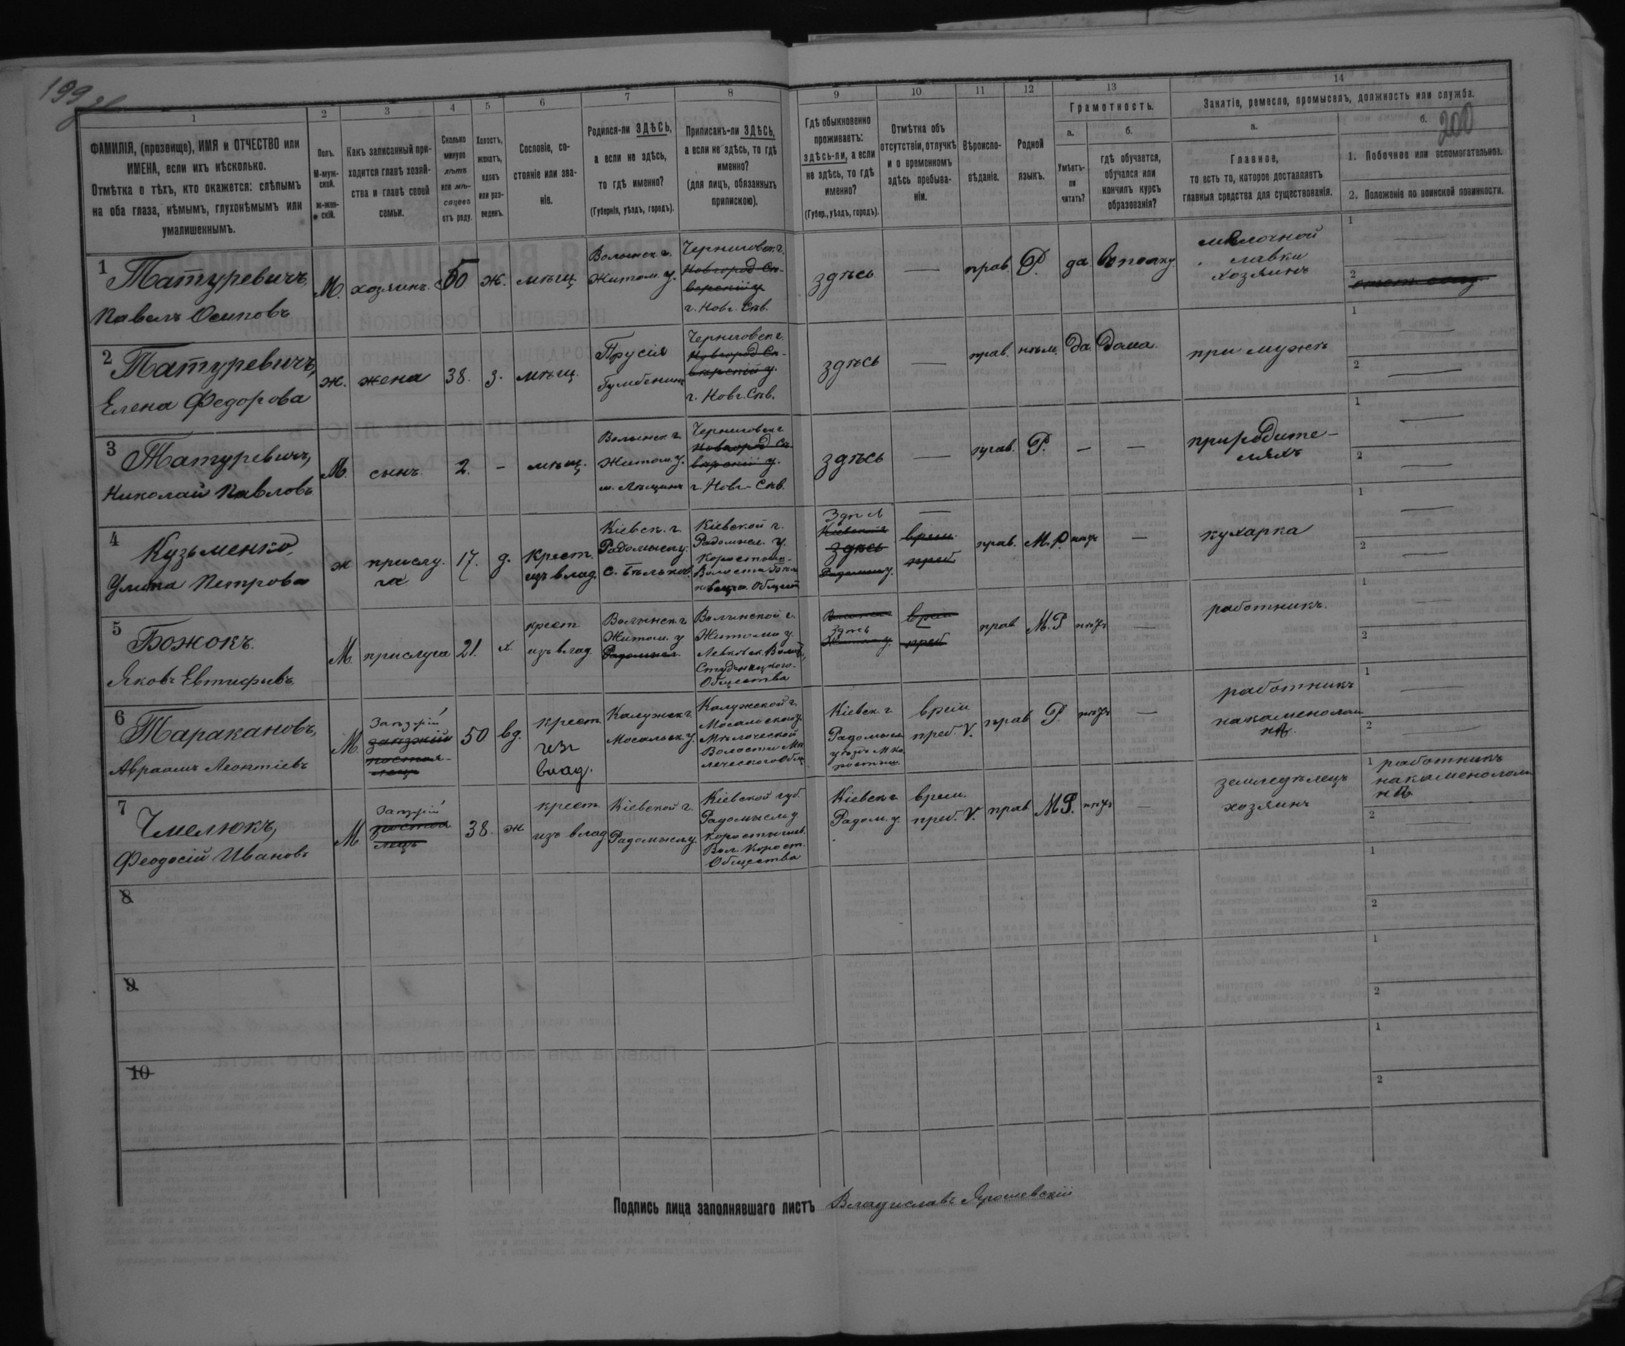 199
200
1
2
3
4
5
6
7
8
9
10
11
12
13
14
ФАМИЛІЯ, (прозвище), ИМЯ и ОТЧЕСТВО или
ИМЕНА, если ихъ нѣсколько.
Отмѣтка о тѣхъ, кто окажется: слѣпымъ
на оба глаза, нѣмымъ, глухонѣмымъ или
умалишеннымъ.
Полъ.
М-муж-
ской.
ж-жен-
скій.
Какъ записанный при-
ходится главѣ хозяй-
ства и главѣ своей
семьи.
Сколько
минуло
лѣтъ
или мѣ-
сяцевъ
отъ роду.
Холостъ,
женатъ,
вдовъ
или раз-
веденъ.
Сословіе, со-
стояніе или зва-
ніе.
Родился-ли ЗДѢСЬ,
а если не здѣсь,
то гдѣ именно?
(Губернія, уѣздъ, городъ).
Приписанъ-ли ЗДѢСЬ,
а если не здѣсь, то гдѣ
именно?
(для лицъ, обязанныхъ
припискою).
Гдѣ обыкновенно
проживаетъ:
здѣсь-ли, а если
не здѣсь, то гдѣ
именно?
(Губер., уѣздъ, городъ).
Отмѣтка объ
отсутствіи, отлучкѣ
и о временномъ
здѣсь пребыва-
ніи.
Вѣроиспо-
вѣданіе.
Родной
языкъ.
Грамотность.
а.
Умѣетъ-
ли
читать?
б.
гдѣ обучается,
обучался или
кончилъ курсъ
образованія?
Занятіе, ремесло, промыселъ, должность или служба.
а.
Главное,
то есть то, которое доставляетъ
главныя средства для существованія.
б.
1. Побочное или вспомогательное.
2. Положеніе по воинской повинности.
1
Татуревичъ,
Павелъ Осиповъ
М.
хозяинъ.
50
ж.
мѣщ.
Волынск г.
Житом у.
Черниговск г.
Новгород Сѣ-
верскій у
г. Новг. Сѣв.
здѣсь
—
прав.
Р.
да
въ полку
мелочной
лавки
хозяинъ
1
2
2
Татуревичъ,
Елена Федорова
ж.
жена
38.
з.
мѣщ.
Пруссія
Гумбенин
Черниговск г.
Новгород Сѣ-
верскій у.
г. Новг. Сѣв.
здѣсь
прав.
нѣм.
Да
Дома.
при мужѣ
1
2
3
Татуревичъ,
Николай Павловъ
М
сынъ
2.
-
мѣщ.
Волынск г.
Житом у.
Черниговск г
Новгород Сѣ
верскій у.
г Новг- Сѣв.
здѣсь
—
прав.
Р.
—
—
при родите-
ляхъ
1
2
4
Кузьменко,
Улита Петрова
ж
прислу-
га
17.
д.
крест.
изъ влад.
Кіевск. г.
Радомысл у.
Кіевской г.
Радомысл. у.
здѣсь
врем.
преб
прав.
М.Р.
нѣтъ
—
кухарка
1
2
5
Божокъ.
Яковъ Евтифиевъ
М
прислуга
21.
х
крест
изъ влад
Волынск г
Житом. у
Волынской г.
Житом у.
Левков. к. Волос.
Студеницкого.
Общества
врем
преб
прав
М.Р
нѣтъ
—
работникъ.
1
2
6
Таракановъ,
Авраамъ Леонтіевъ
М
50
вд.
крест
изъ
влад.
Калужск г
Мосальск у.
Калужской г.
Мосальск у
Волости
Кіевск г
Радомысл
врем
преб. V.
прав
Р.
нѣтъ
—
работникъ
на каменолом
нѣ
1
2
7
Чмелюкъ,
Феодосій Ивановъ
М
38.
ж
крест
изъ влад
Кіевской г.
Радомысл у
Кіевской губ.
Радомысл у
Коростышев.
Вол. Корост.
Общества
Кіевск г
Радом. у.
врем
преб. V.
прав
М.Р.
нѣтъ
—
земледѣлецъ
хозяинъ
1 работникъ
на каменолом
нѣ
2
8
1
2
9
1
2
10
1
2
Подпись лица заполнявшаго листъ Владиславъ Ярошевскій